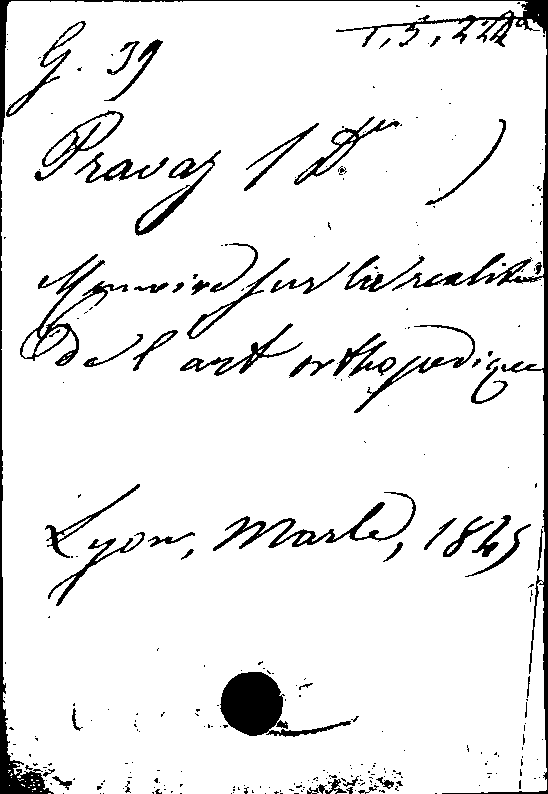 G. 39
1, 3, 222a
Pravaz (Dr)
Memoire sur la realité
de l'art orthopedique
Lyon, Marle, 1845